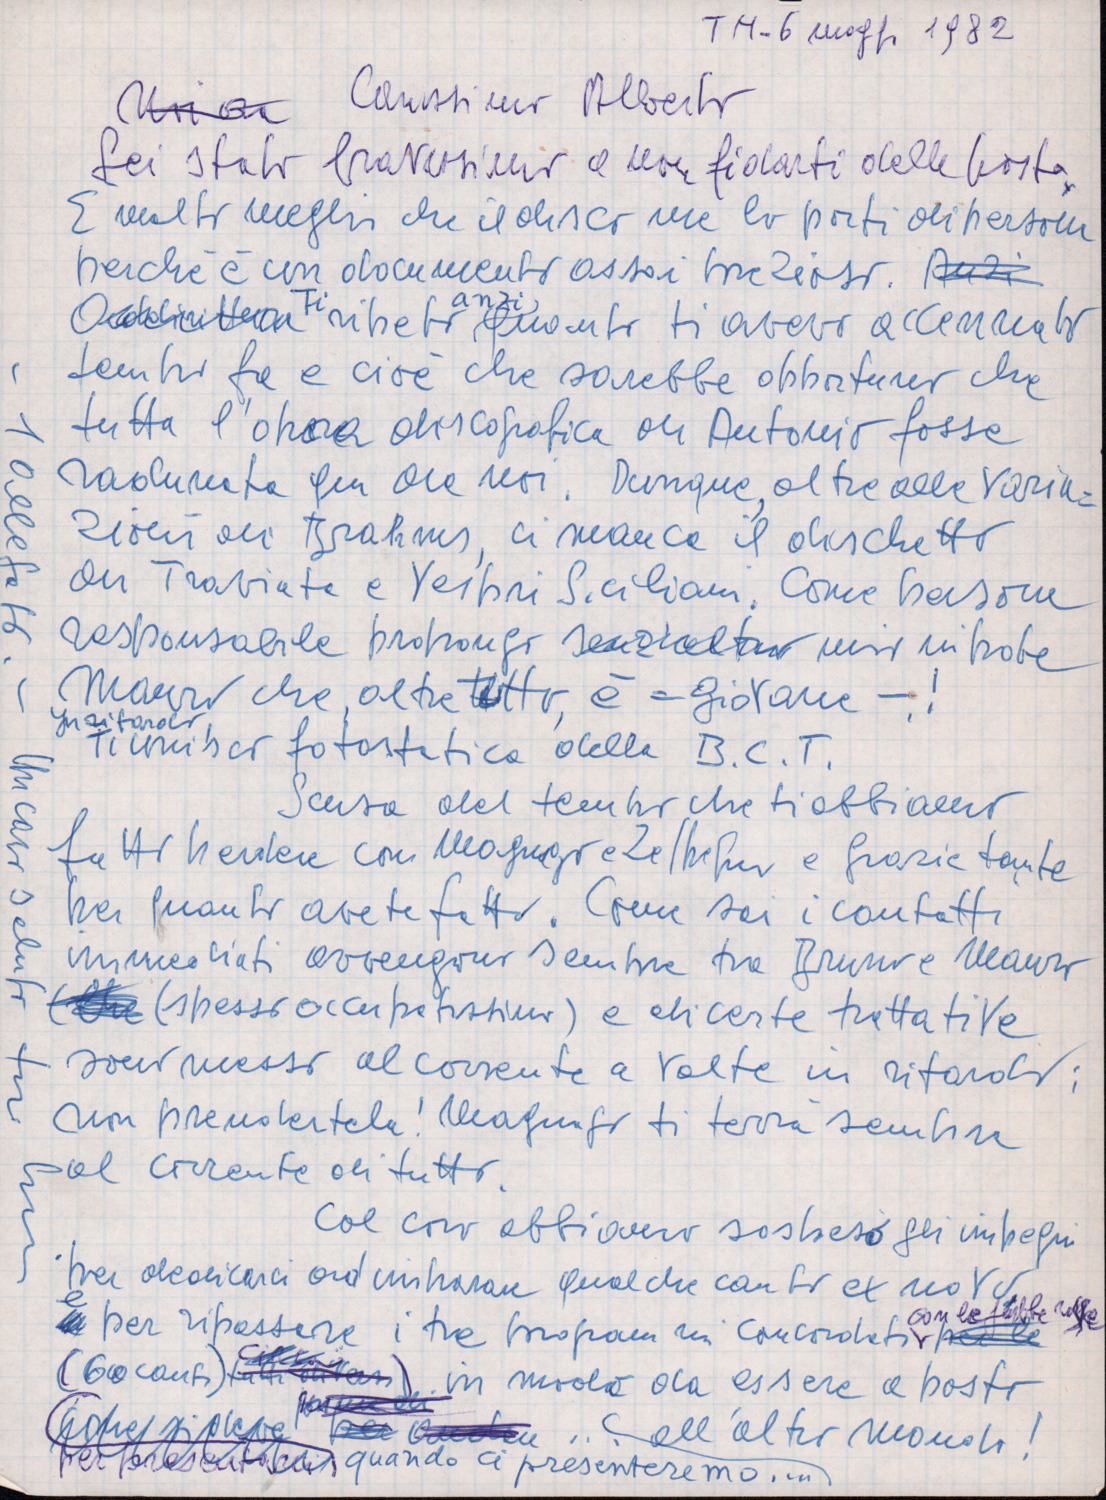 TN-6 maggio 1982
Carissimo Alberto
Sei stato bravissimo a non fidarti della posta.
È molto meglio che il disco me lo porti di persona
perché è un documento assai prezioso. Anzi
Addirittura Ti ripeto anzi, quanto ti avevo accennato
tempo fa e cioè che sarebbe opportuno che
tutta l'opera discografica di Antonio fosse
radunata qui da noi. Dunque, oltre alle Varia=
zioni di Brahms, ci manca il dischetto
di Traviata e Vespri Siciliani. Come persona
responsabile propongo senz'altro mio nipote
Mauro che, oltre tutto, è – giovane –!
In ritardo,
Ti unisco fotostatica della B.C.T.
Scusa del tempo che ti abbiamo
fatto perdere con Magnago e e grazie tante
per quanto avete fatto. Come sai i contatti
immediati avvengono sempre tra Bruno e Mauro
(spesso occupatissimo) e di certe trattative
sono messo al corrente a volte in ritardo;
non prendertela! Magnago ti terrà sempre
al corrente di tutto.
Col coro abbiamo sospeso gli impegni
per dedicarci ad imparare qualche canto ex novo
e per ripassare i tre programmi concordati
(60 canti) in modo da essere a posto
... all'altro mondo!
quando ci presenteremo....
– 1 allegato. – Un caro saluto tuo